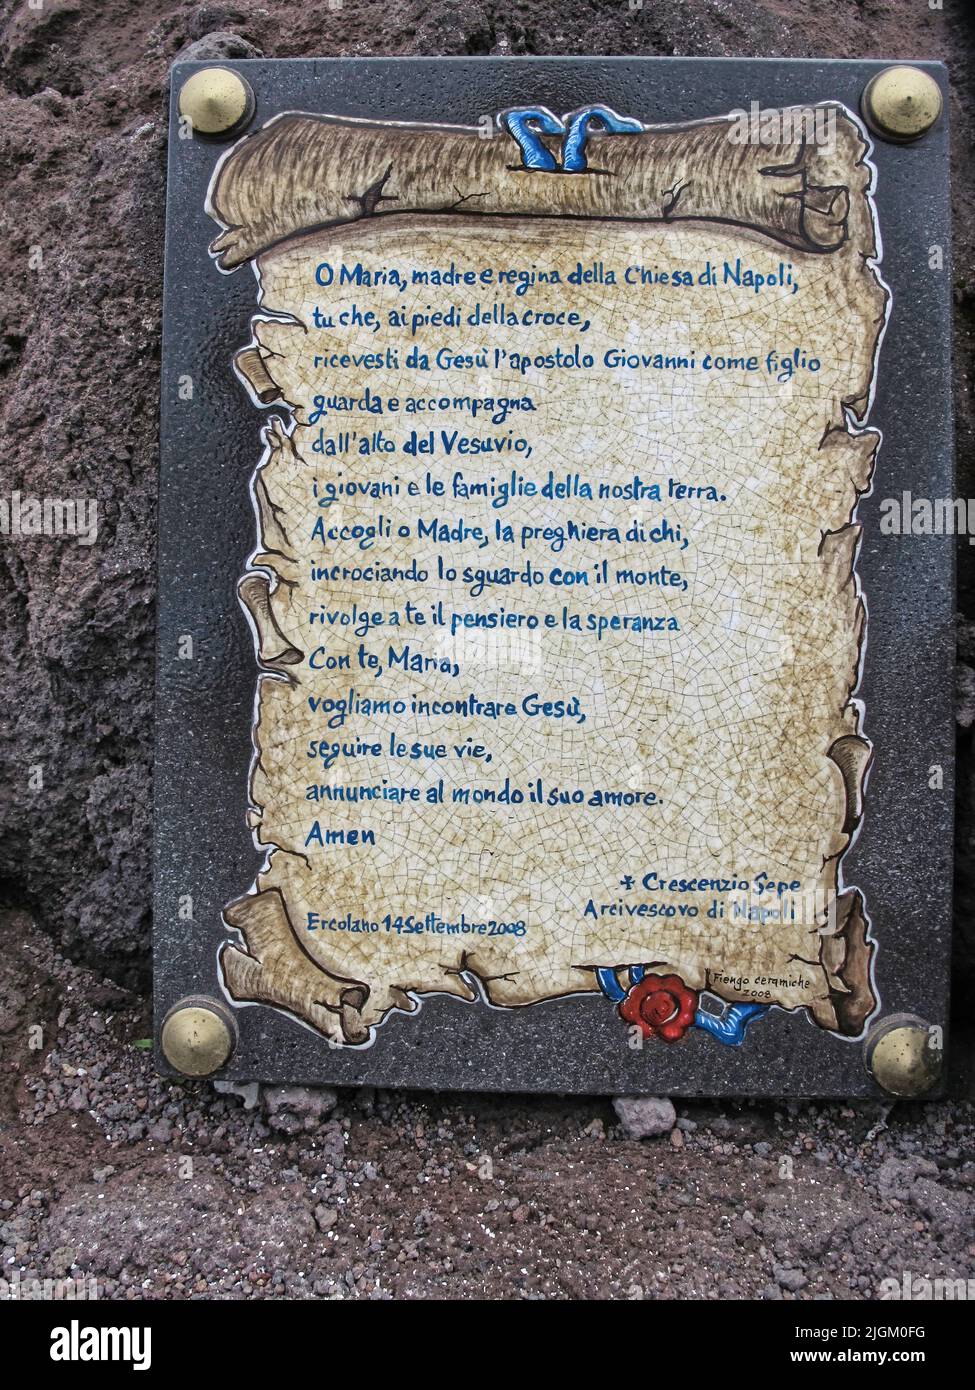 O Maria, madre e regina della Chiesa di Napoli,
tu che, ai piedi della croce,
ricevesti da Gesù l'apostolo Giovanni come figlio
guarda e accompagna
dall'alto del Vesuvio,
i giovani e le famiglie della nostra terra.
Accogli o Madre, la preghiera di chi,
incrociando lo sguardo con il monte,
rivolge a te il pensiero e la speranza
Con te, Maria,
vogliamo incontrare Gesù,
seguire le sue vie,
annunciare al mondo il suo amore.
Amen
✝ Crescenzio Sepe
Arcivescovo di Napoli
Ercolano 14 Settembre 2008
Fiengo ceramiche
2008
alamy
Image ID: 2JGM0FG
www.alamy.com